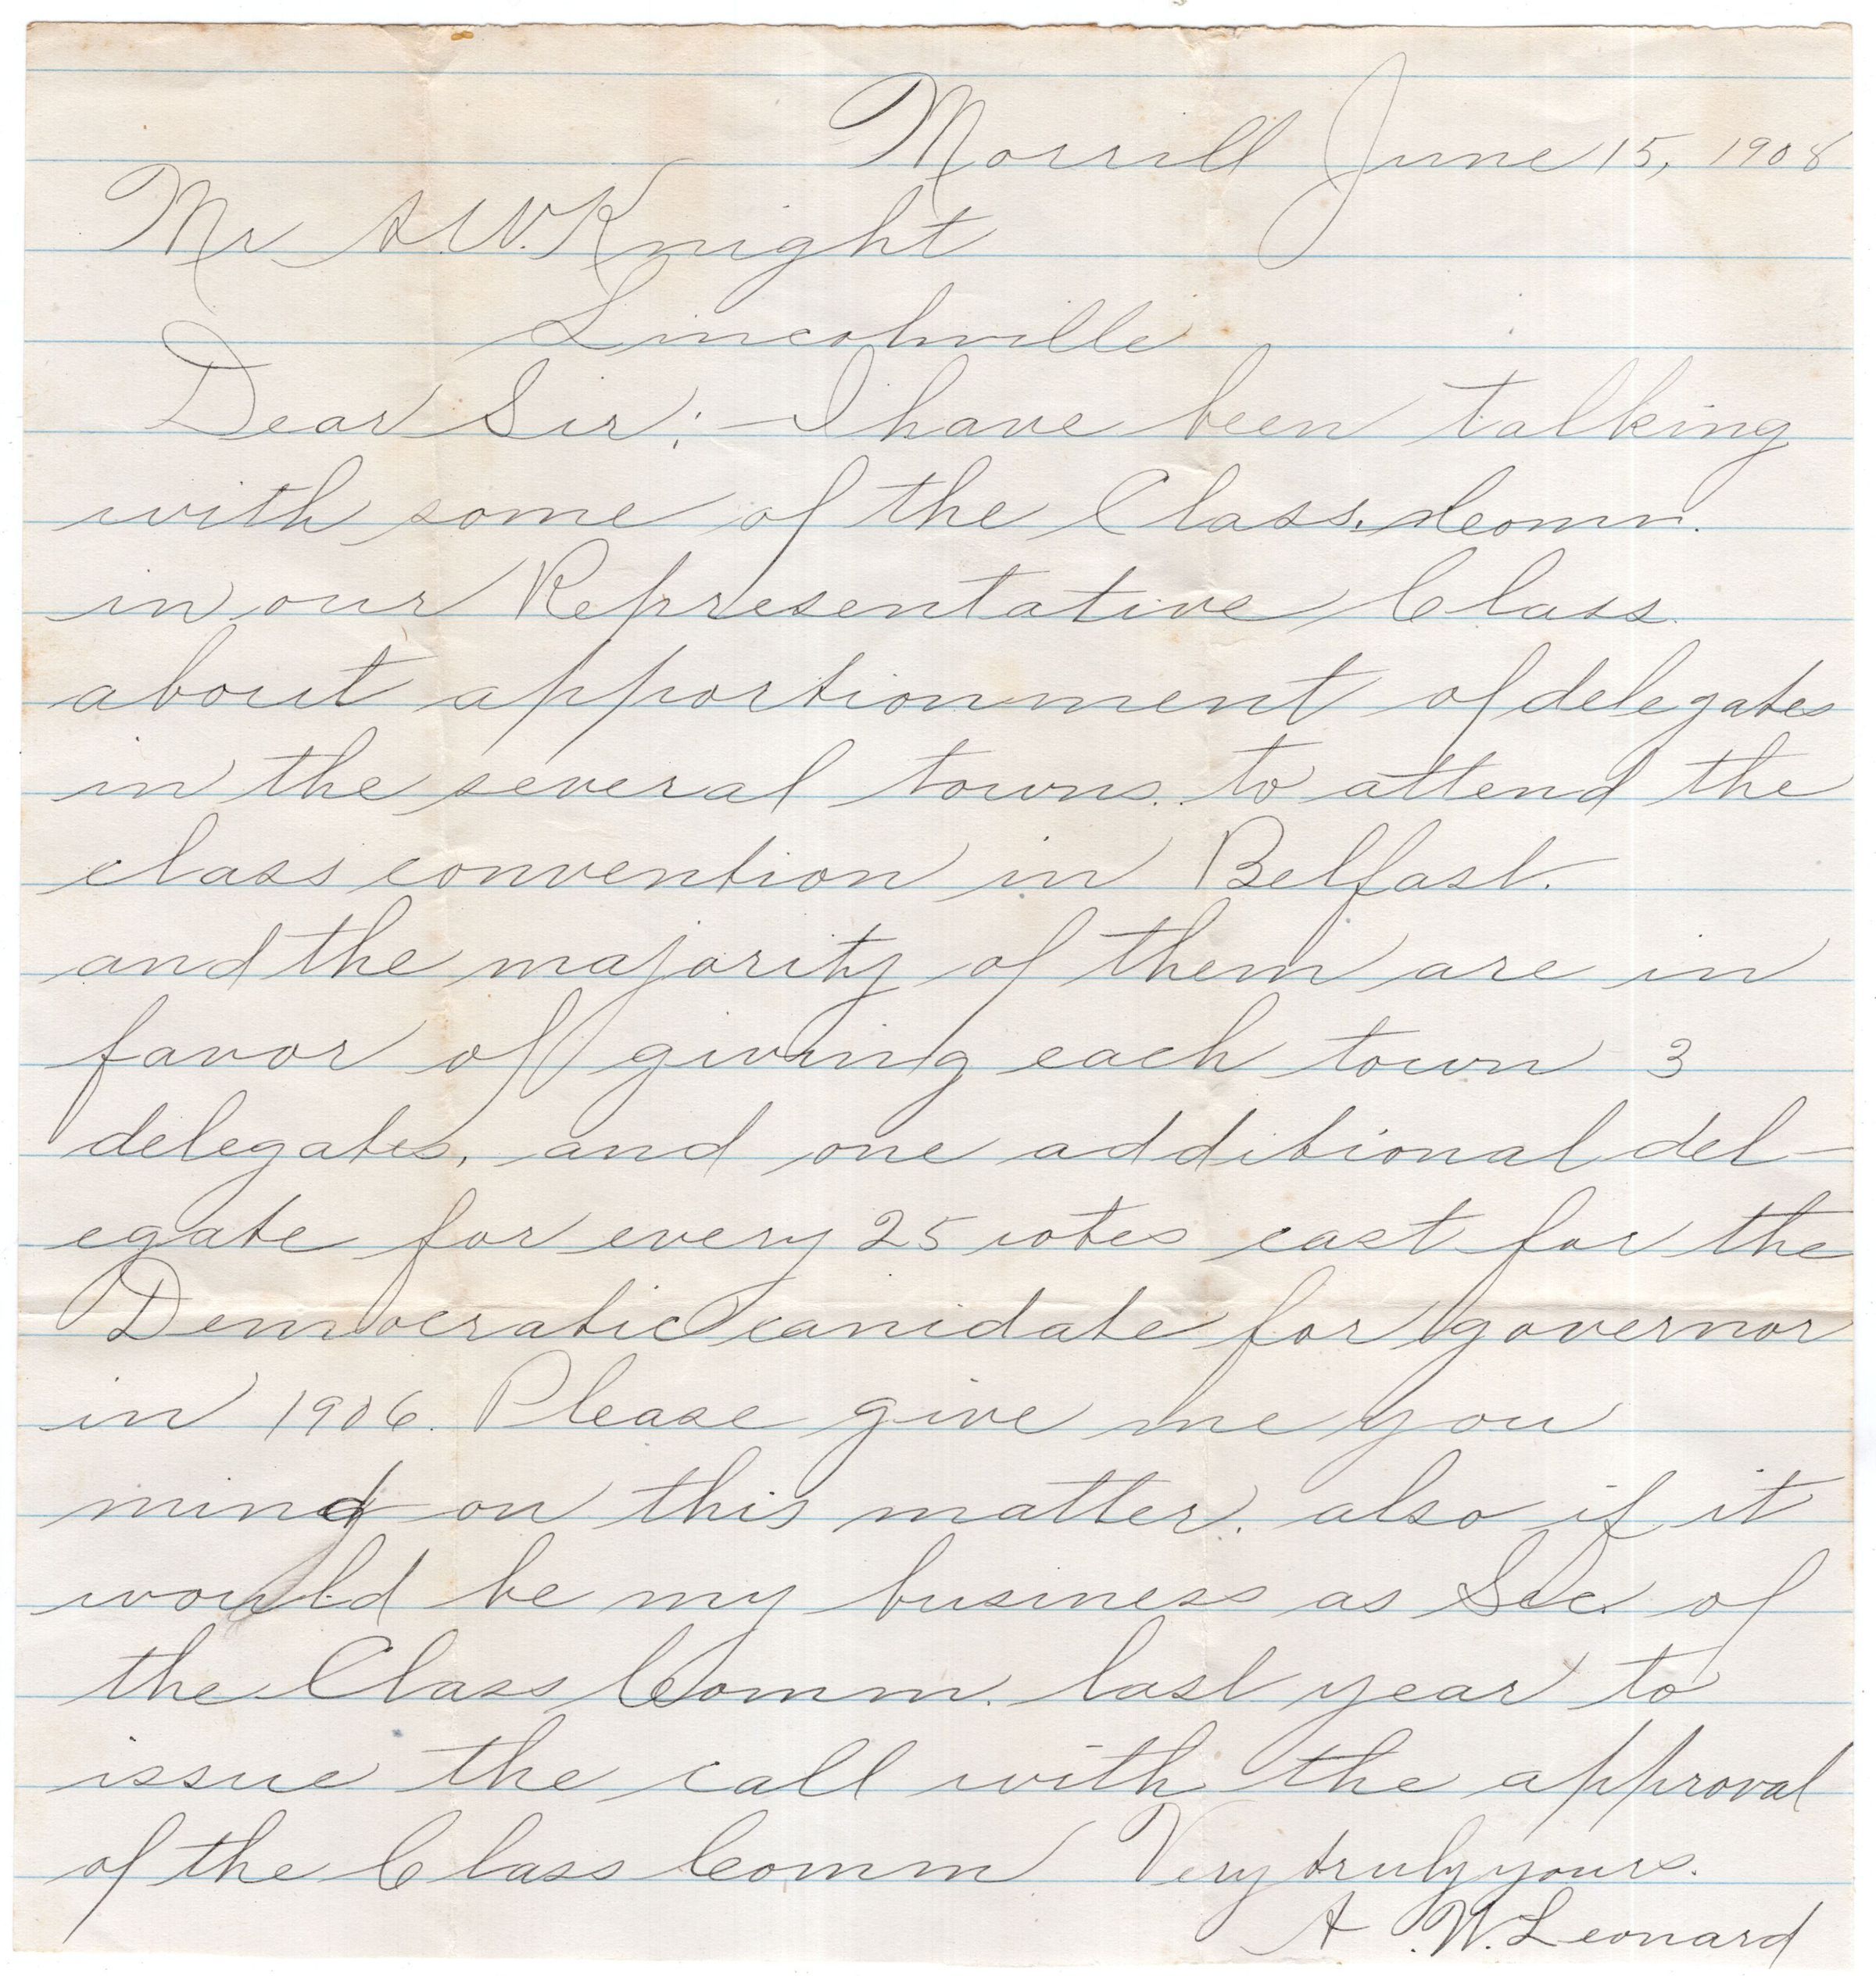 Morrill June 15, 1908
Mr A.W. Knight
Lincolnville
Dear Sir; - I have been talking
with some of the Class. Comm.
in our Representative Class
about apportionment of delegates
in the several towns. to attend the
class convention in Belfast.
and the majority of them are in
favor of giving each town 3
delegates, and one additional del-
egate for every 25 votes cast for the
Democratic canidate for governor
in 1906. Please give me you
mind on this matter. also if it
would be my business as Sec. of
the Class Comm. last year to
issue the call with the approval
of the Class Comm Very truly yours.
A. W. Leonard